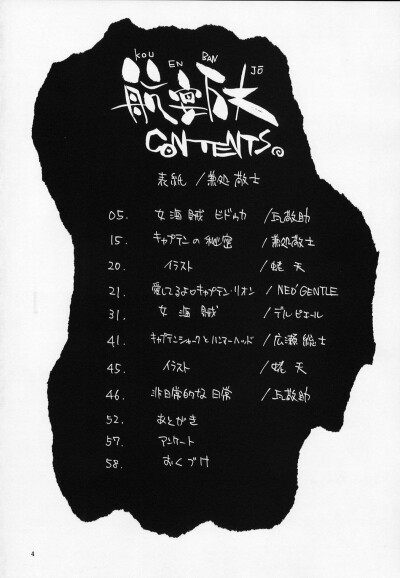 KOU EN BAN JŌ
CONTENTS。
表紙 /兼処敬士
05. 女海賊 ビドゥカ /兵敬助
15. キャプテンの秘密 /兼処敬士
20. イラスト /蛯天
21. 愛してるよ♡キャプテン・リオン /NEO'GENTLE
31. 女海賊 /デルピエール
41. キャプテンシャークとハンマーヘッド /広瀬総士
45. イラスト /蛯天
46. 非日常的な日常 /兵敬助
52. あとがき
57. アンケート
58. おくづけ
4